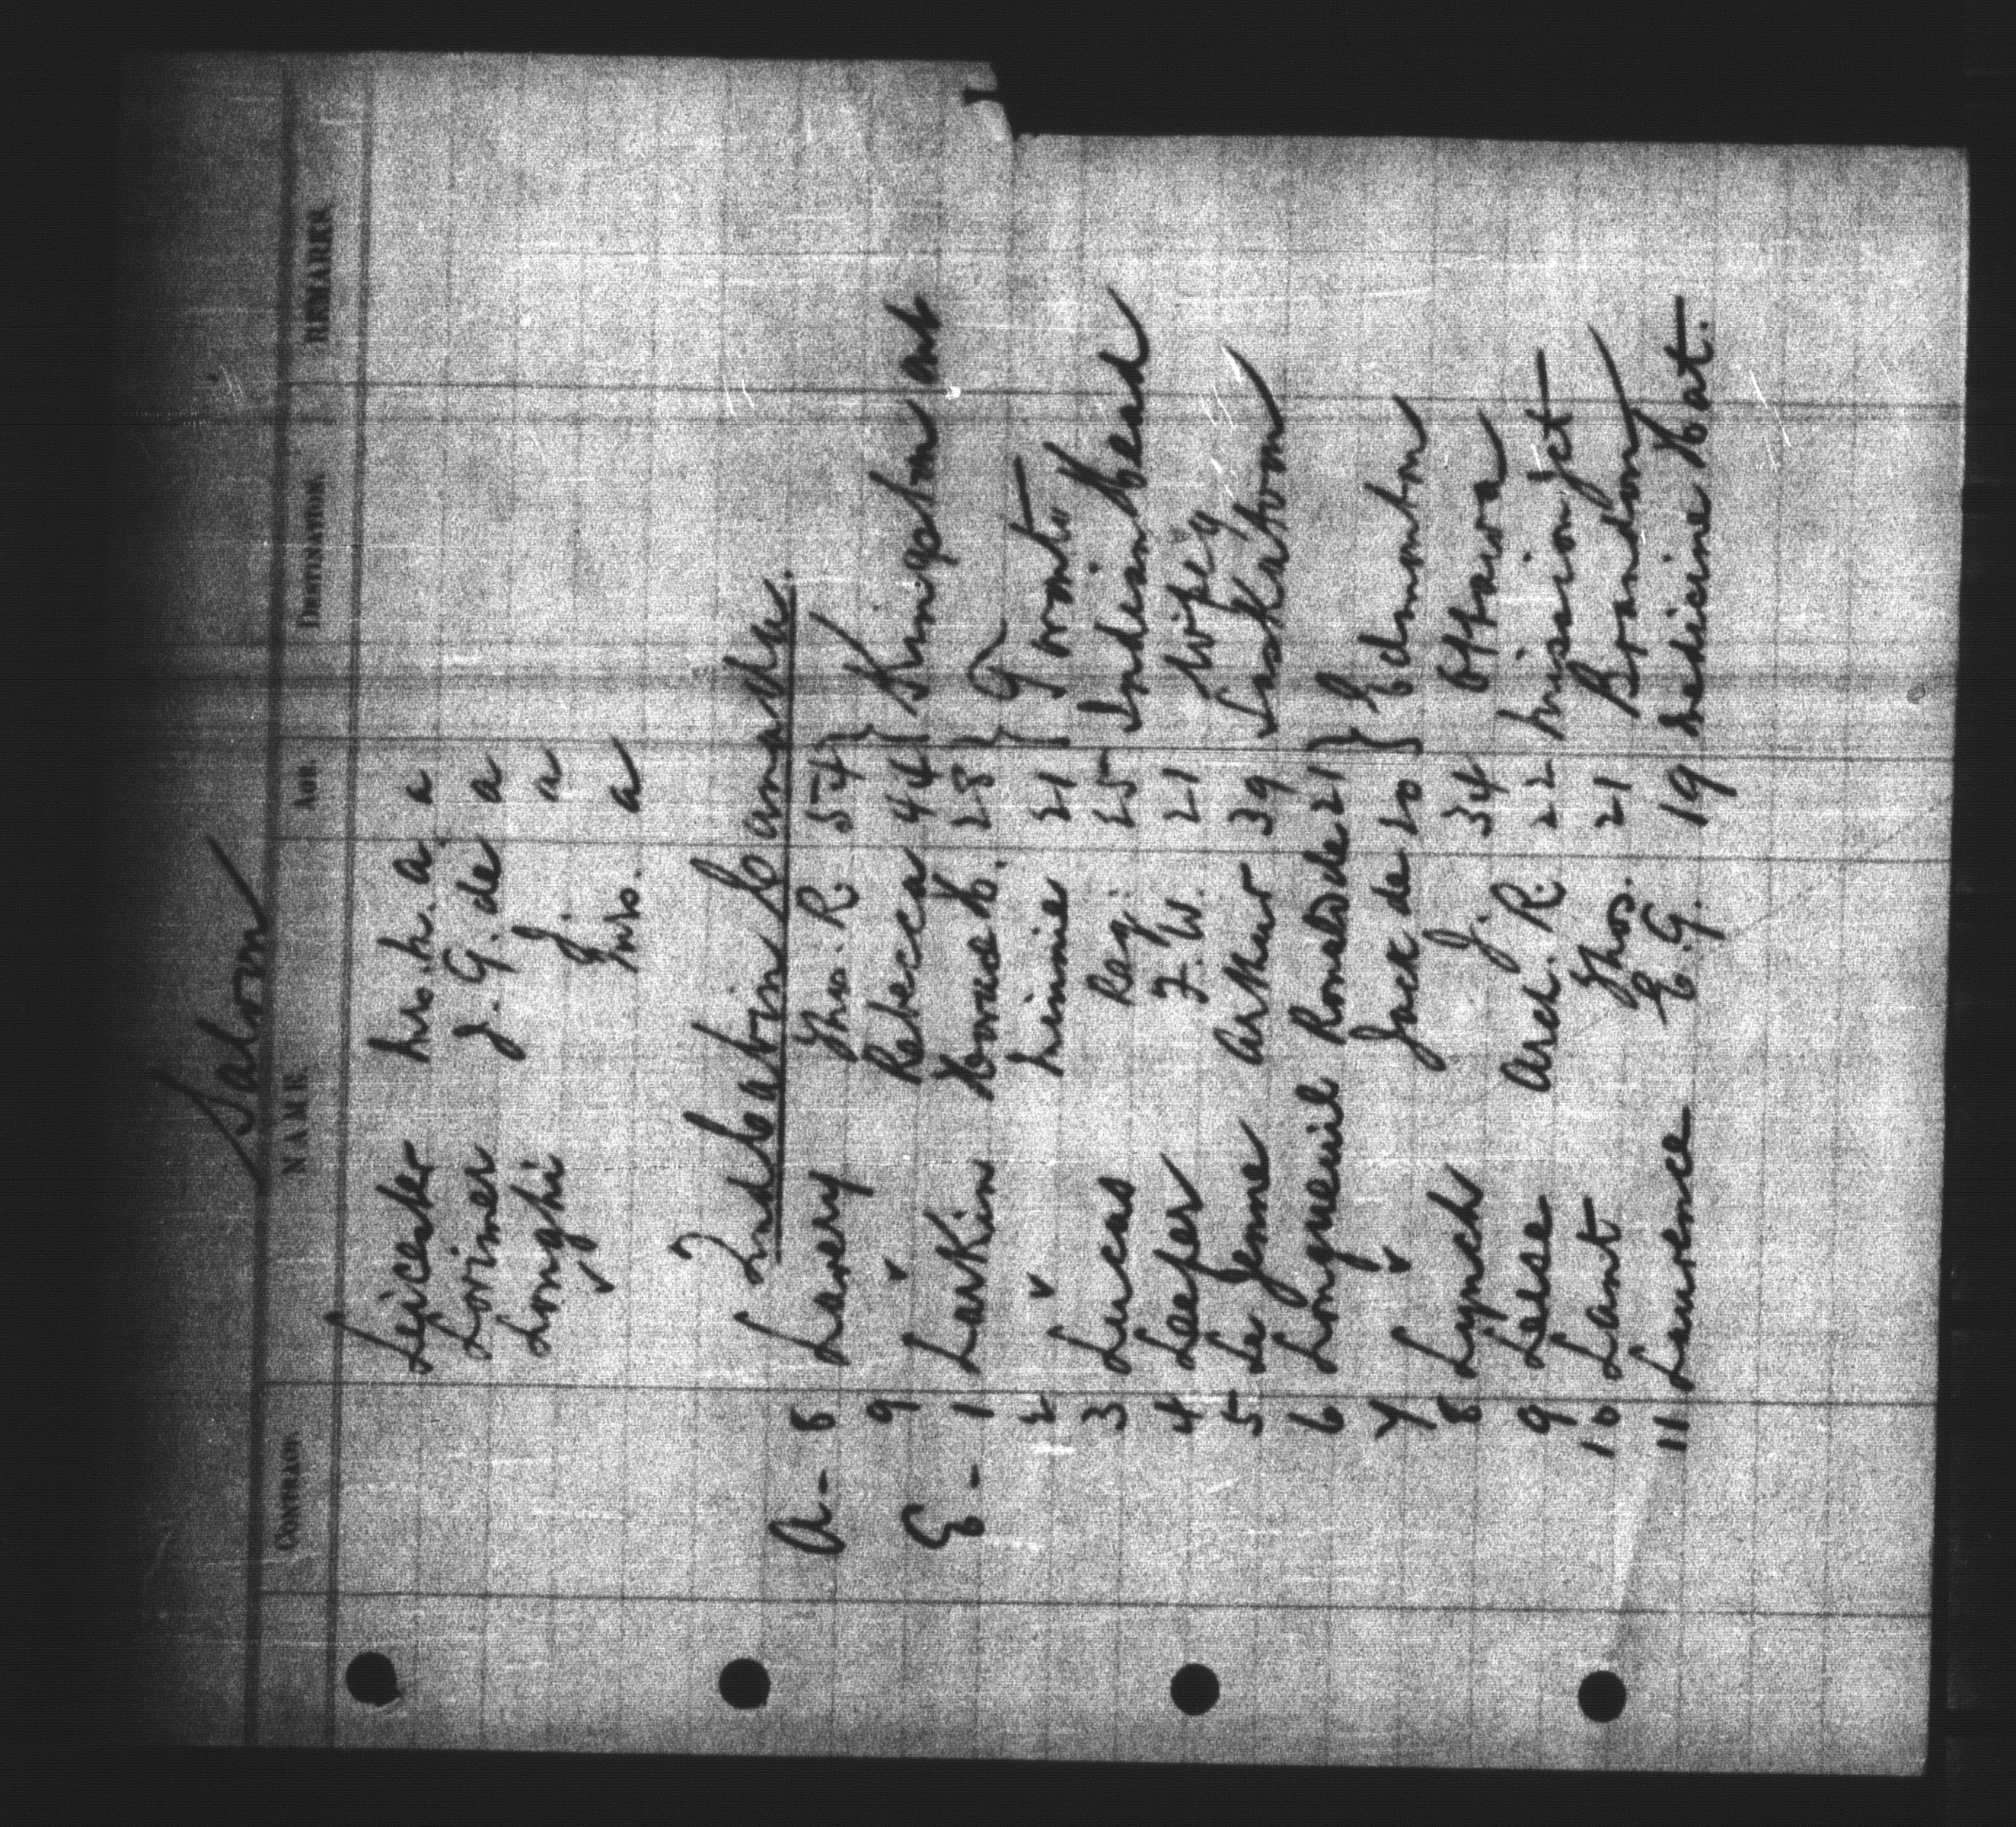 Saloon
CONTRACT NAME AGE DESTINATION REMARKS
Leicester Mrs. M. A. a
Lorimer J. G. de a
Longhi J. a
" Mrs. a
2nd Cabin Canada.
A - 8 Lavery Thos. R. 54 } Kingston Ont
9 " Rebecca 44
E - 1 Larkin 28 } Toronto
2 " Minnie 21
3 Lucas Reg. 25 Indian Head
4 Leefer F. W. 21 Wipeg
5 Le Jenne Arthur 39 Saskatoon
6 Longueuil Ronald de 21 } Edmonton
7 " Jack de 20
8 Lynch J. 34 Ottawa
9 Leese Arch. R. 22 Mission Jct
10 Lant Thos. 21 Brandon
11 Laurence E. G. 19 Medicine Hat.